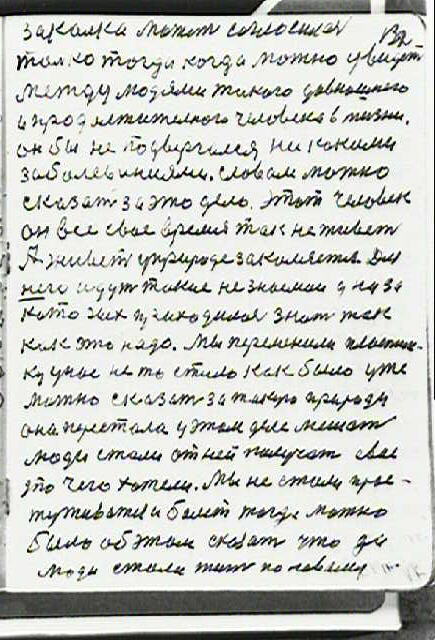 закалка может согласится
толко тогда когда можно увидет
между людями такого давношнего
и продолжителного человека в жизни.
он бы не подвергался ни каким
заболеваниям. словам можно
сказат за это дело. Этот человек
он все свое время так не живет
А живет у природе закаляется Для
него идут такие незнамаи
приходился знат так
как это надо. Мы переменили
ку у нас не то стало как было уже
можно сказат за такую природу
она перестала у этом деле мешат
люди стали от ней получат свае
это чего хотели. Мы не стали прос-
туживатся и болет тогда можно
было об этом сказат что да
люди стали жит по новаму